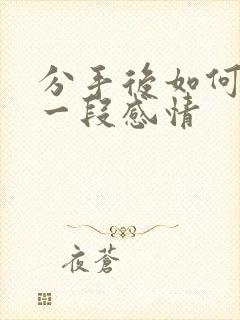 分手後如何
一段感情
夜蒼